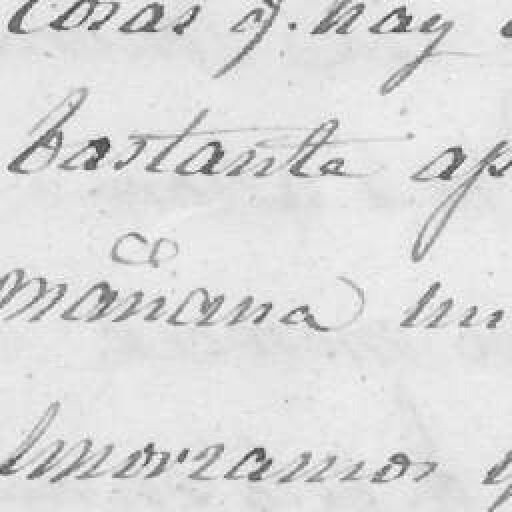 cosas q. hay
bastante ap
mañana
lmorzamos